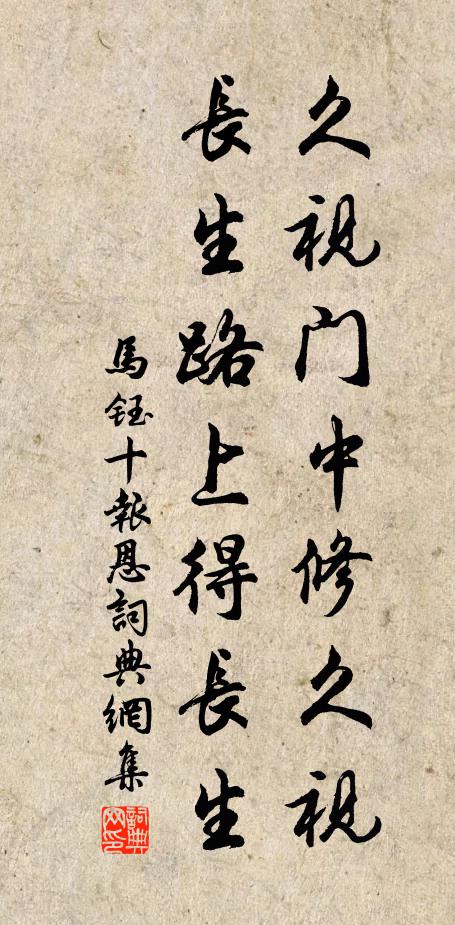 久視門中修久視
長生路上得長生
馬鈺十報恩詞典網集
詞典网印